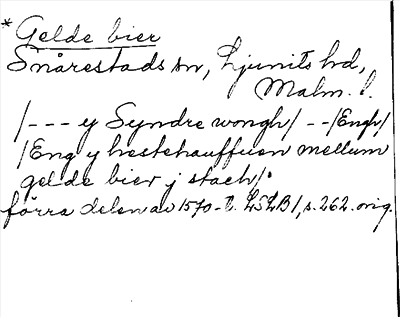 * Gelde bier
Snårestads sn, Ljunits hd,
Malm. l.
/--- y Syndre wongh/ --/Engh/
/Eng y hestehauffuen mellum
gelde bier j stach/.
förra delen av 1570-t. LSLB1, s. 262. orig.